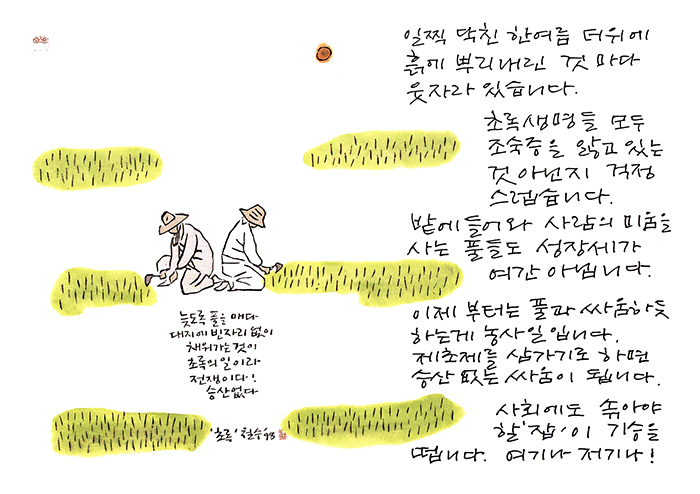 일찍 닥친 한여름 더위에
흙에 뿌리내린 것 마다
웃자라 있습니다.
초록생명들 모두
조숙증을 앓고 있는
것 아닌지 걱정
스럽습니다.
밭에 들어와 사람의 미움을
사는 풀들도 성장세가
여간 아닙니다.
이제 부터는 풀과 싸움하듯
하는게 농사일 입니다.
제초제를 삼가기로 하면
승산 없는 싸움이 됩니다.
사회에도 솎아야
할 '잡'이 기승을
떱니다. 여기나 저기나!
늦도록 풀을 매다
대지에 빈자리 없이
채워가는 것이
초록의 일이라
전쟁이다!
승산없다
'초록' 철수 93